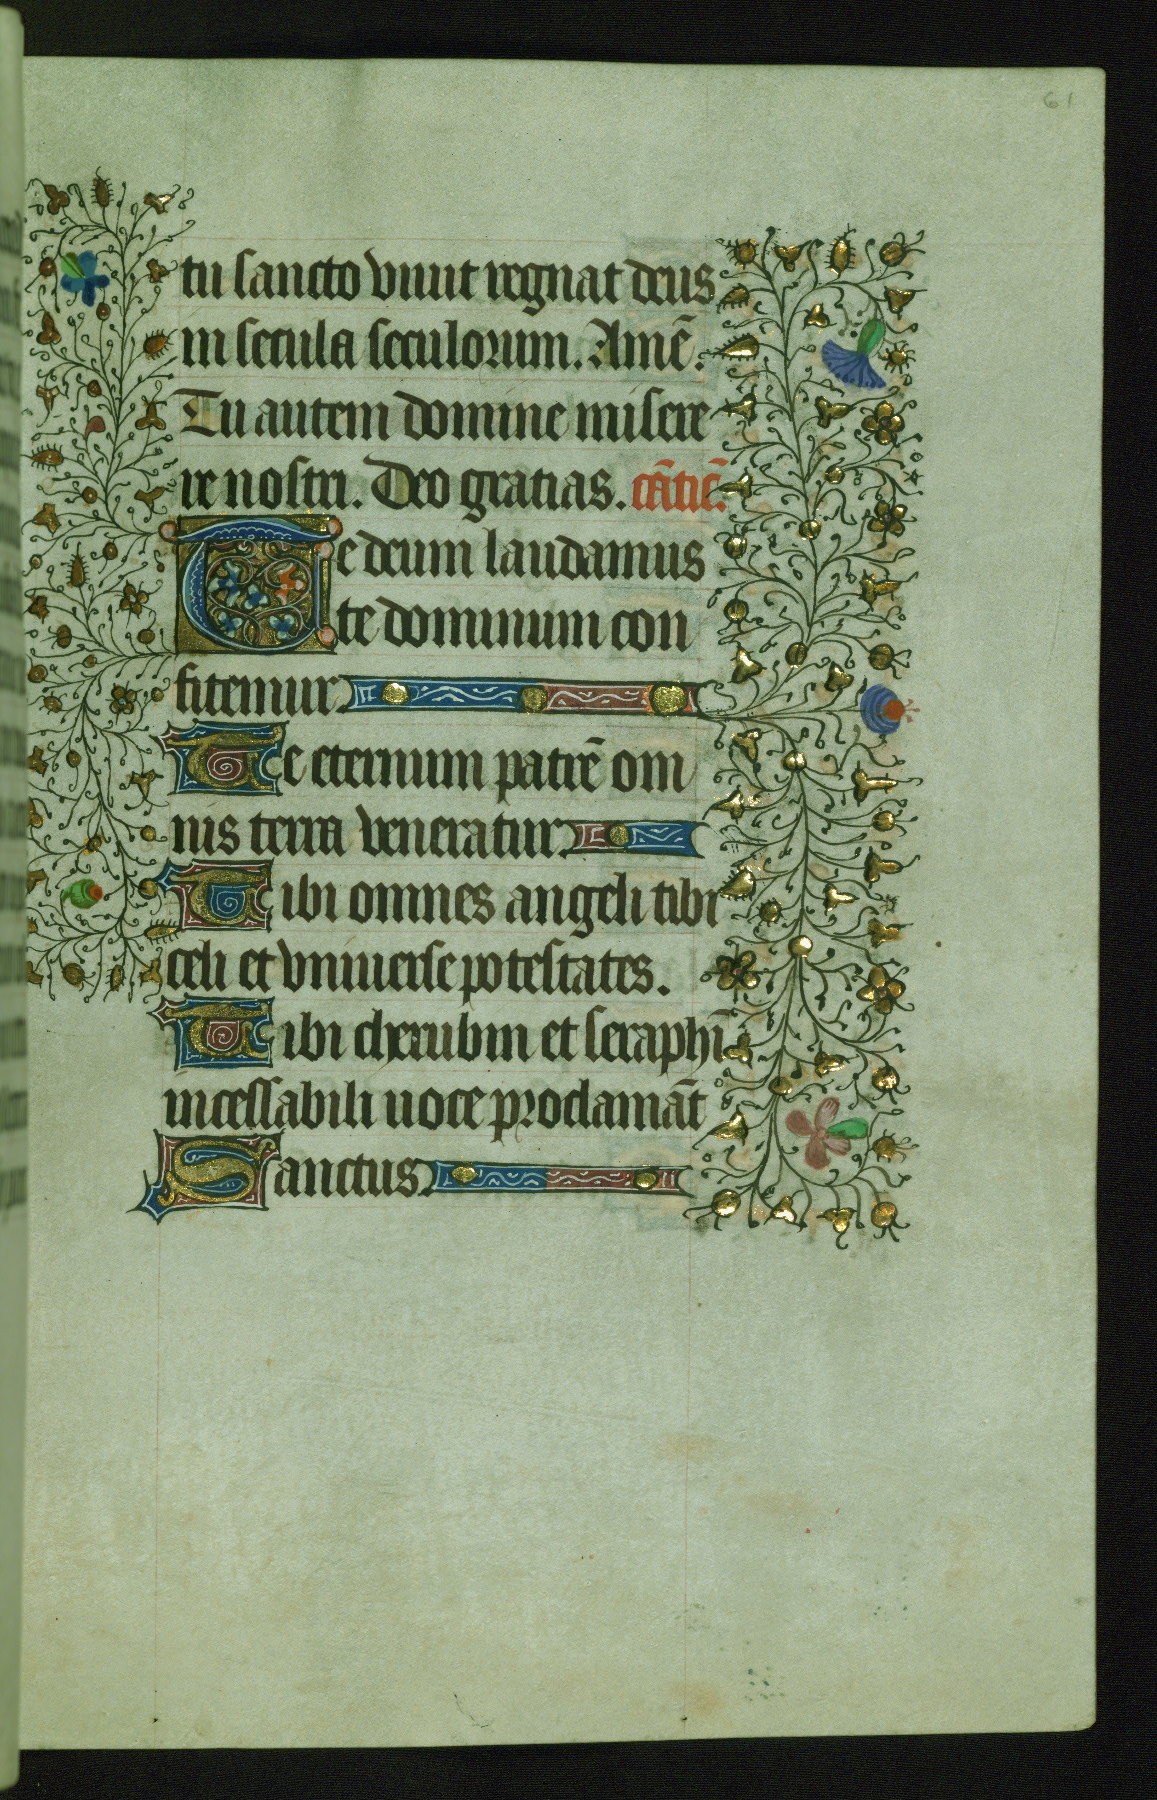 61
tu sancto viuit regnat deus
in secula seculorum. Amē.
Tu autem domine misere
re nostri. Deo gratias. cātic̄.
Te deum laudamus
te dominum con
fitemur
Te eternum patrē om
nis terra veneratur
Tibi omnes angeli tibi
celi et vniuerse potestates.
Tibi cherubin et seraphī
incessabili uoce proclamāt
Sanctus